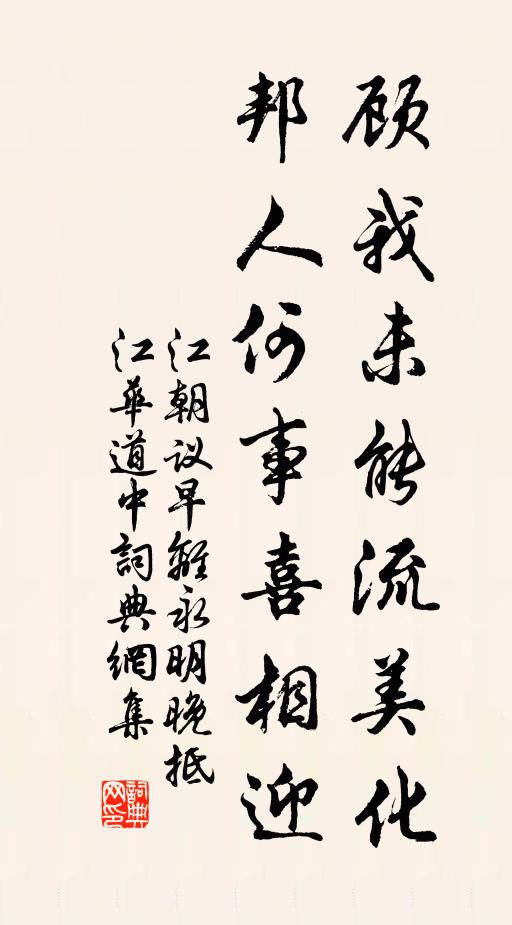 顾我未能流美化
邦人何事喜相迎
江朝议早離永明晚抵
江華道中詞典網集
詞典
网印